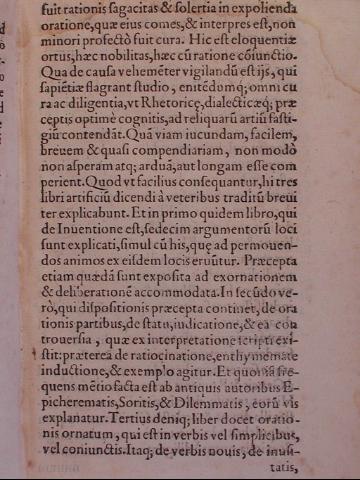 fuit rationis sagacitas & solertia in expolienda
oratione, quæ eius comes, & interpres est, non
minori profectò fuit cura. Hic est eloquentiæ
ortus, hæc nobilitas, hæc cũ ratione cõiunctio.
Qua de causa vehemẽter vigilandũ est ijs, qui
sapiẽtiæ flagrant studio, enitẽdumq; omni cu
ra ac diligentia, vt Rhetoricę, dialecticæq; præ
ceptis optimè cognitis, ad reliquarũ artiũ fasti-
giũ contendãt. Quã viam iucundam, facilem,
breuem & quasi compendiariam, non modò
non asperam atq; arduã, aut longam esse com
perient. Quod vt facilius consequantur, hi tres
libri artificiũ dicendi à veteribus traditũ breui
ter explicabunt. Et in primo quidem libro, qui
de Inuentione est, sedecim argumentorũ loci
sunt explicati, simul cũ his, quę ad permouen-
dos animos ex eisdem locis eruũtur. Præcepta
etiam quædã sunt exposita ad exornationem
& deliberationẽ accommodata. In secũdo ve-
rò, qui dispositionis præcepta continet, de ora
tionis partibus, de statu, iudicatione, & ea con
trouersia, quæ ex interpretatione scripti exi-
stit: præterea de ratiocinatione, enthymemate
inductione, & exemplo agitur. Et quoniã fre-
quens mẽtio facta est ab antiquis autoribus E-
picherematis, Soritis, & Dilemmatis, eorũ vis
explanatur. Tertius deniq; liber docet oratio-
nis ornatum, qui est in verbis vel simplicibus,
vel coniunctis. Itaq; de verbis nouis, de inusi-
tatis,